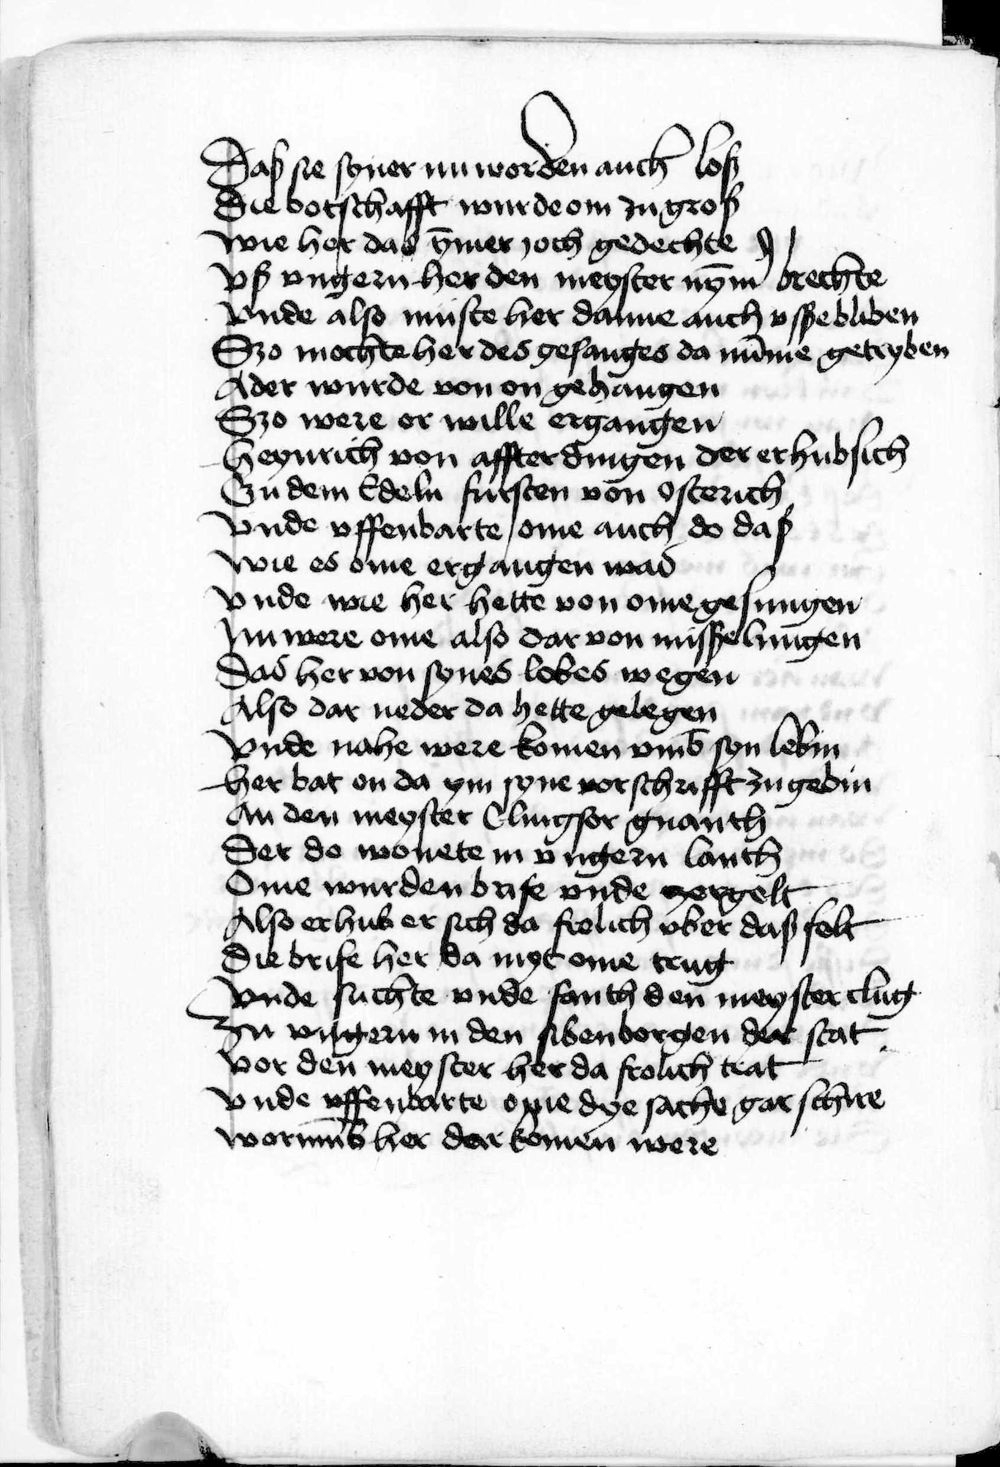 Daß sie syner nu worden auch loß
Die botschafft wurde om zu groß
Wie her das ȳmer joch gedechte
Vß vngern her den meyster nȳm brechte
Vnde also muste her danne auch vsse bliben
Szo mochte her des gesanges da nūme getryben
Ader wurde von on gehangen
Szo were or wille ergangen
Heynrich von affterdingen der erhub sich
Zu dem Edeln fursten von Osterich
Vnde vffenbarte ome auch do daß
Wie es ome ergangen was
Vnde wie her hette von ome gesungen
Im were ome also dar von misselungen
Das her von synes lobes wegen
Also dar neder da hette gelegen
Vnde nahe were komen vmb syn lebin
Her bat on da ym syne vorschrifft zu gebin
An den meyster Clingsor gnanth
Der do wonete in vngern lanth
Ome wurden brife vnde zergelt
Also erhub er sich da frolich vber daß felt
Die brife her da myt ome trug
Vnde suchte vnde fanth den meyster clug
Zu vngern in den sibenborgen der stat
Vor den meyster her da frolich trat
Vnde vffenbarte ome dye sache gar schire
Worumb her dar komen were